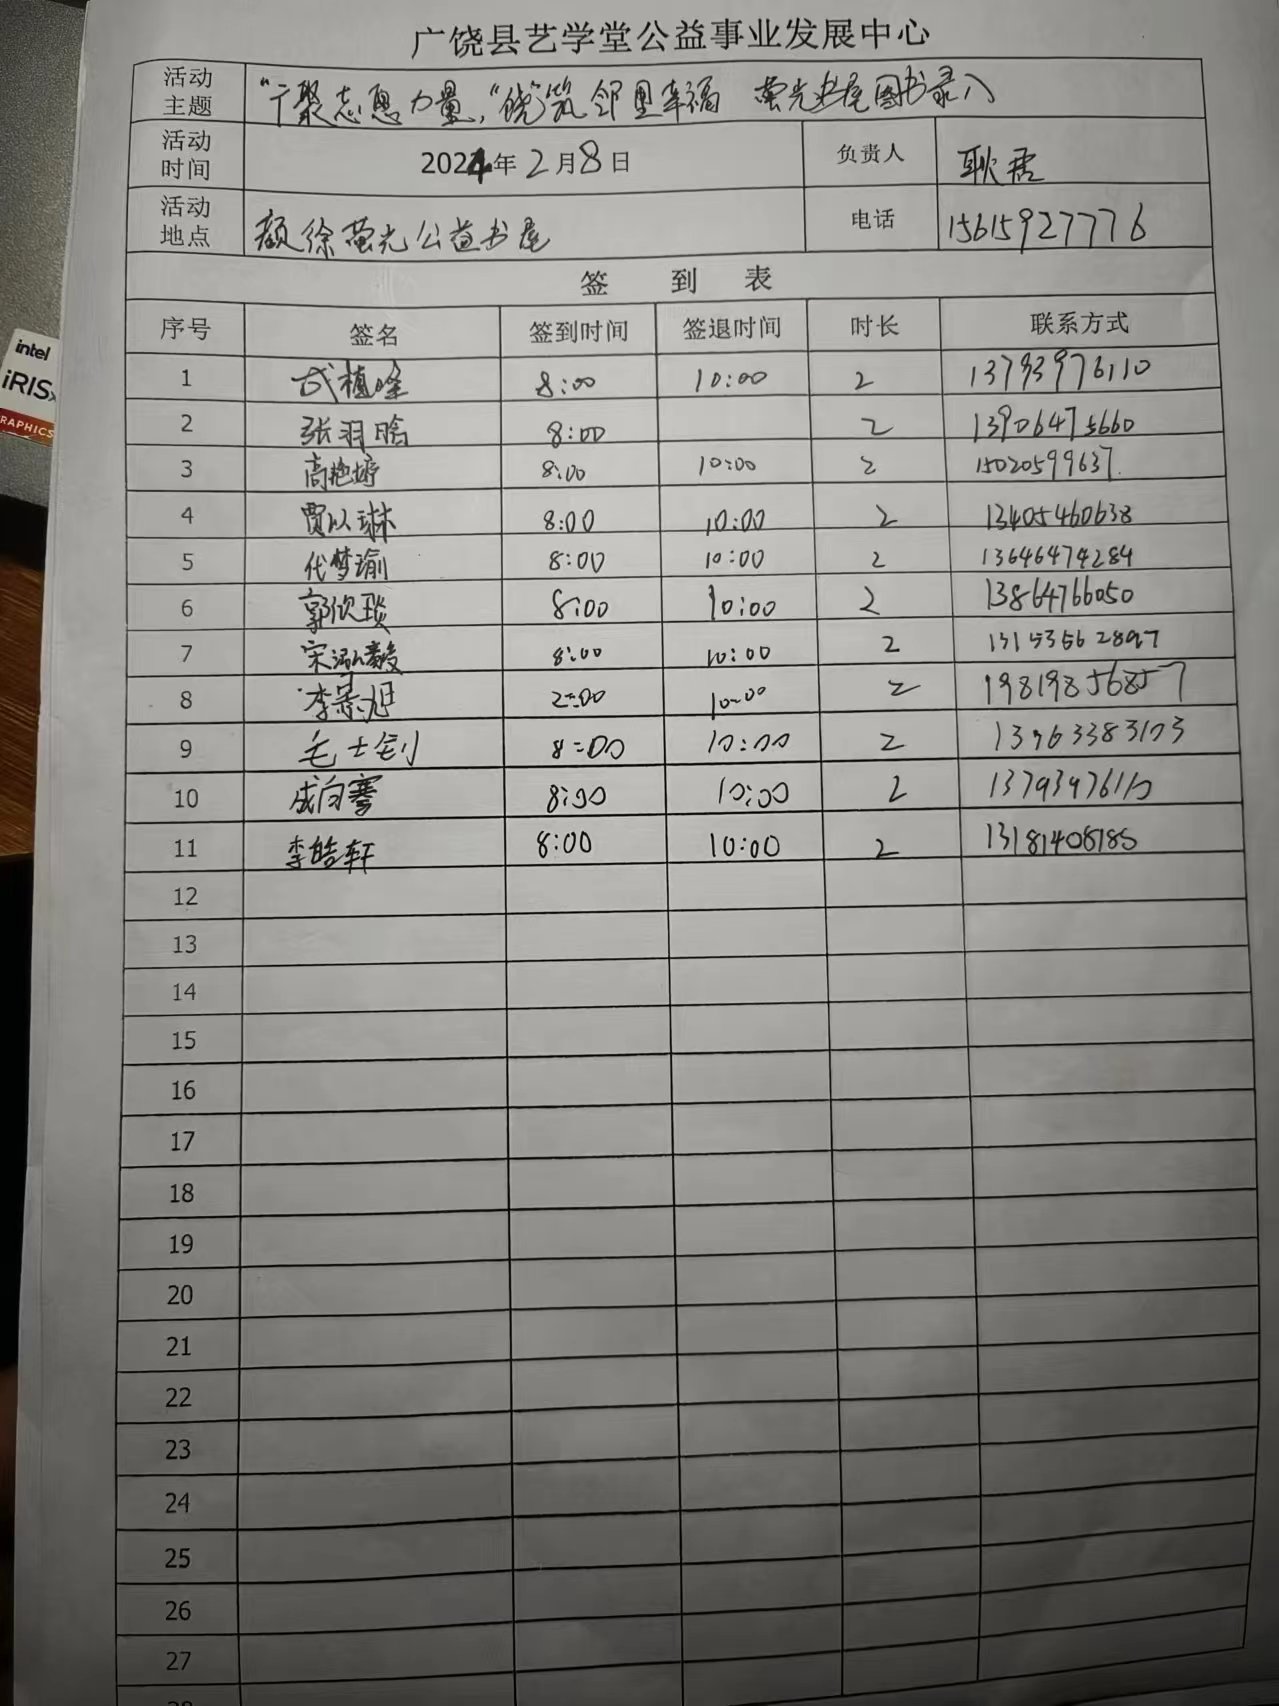 广饶县艺学堂公益事业发展中心
活动主题 "广聚志愿力量,"饶"筑邻里幸福 萤光书屋图书录入
活动时间 2024年2月8日 负责人 耿君
活动地点 颜徐萤光公益书屋 电话 15615927776
签 到 表
序号 签名 签到时间 签退时间 时长 联系方式
1 8:00 10:00 2 13793976110
2 张羽晗 8:00 2 13906475660
3 高艳婷 8:00 10:00 2 15020599637
4 贾以琳 8:00 10:00 2 13405460638
5 代梦瑜 8:00 10:00 2 13646474284
6 郭欣琰 8:00 10:00 2 13864766050
7 宋泓毅 8:00 10:00 2 13153562897
8 李景旭 2:00 10:00 2 19819856857
9 毛士钊 8:00 10:00 2
10 成向骞 8:00 10:00 2 13793976110
11 李皓轩 8:00 10:00 2 13181408185
12
13
14
15
16
17
18
19
20
21
22
23
24
25
26
27
intel
iRISx
RAPHICS